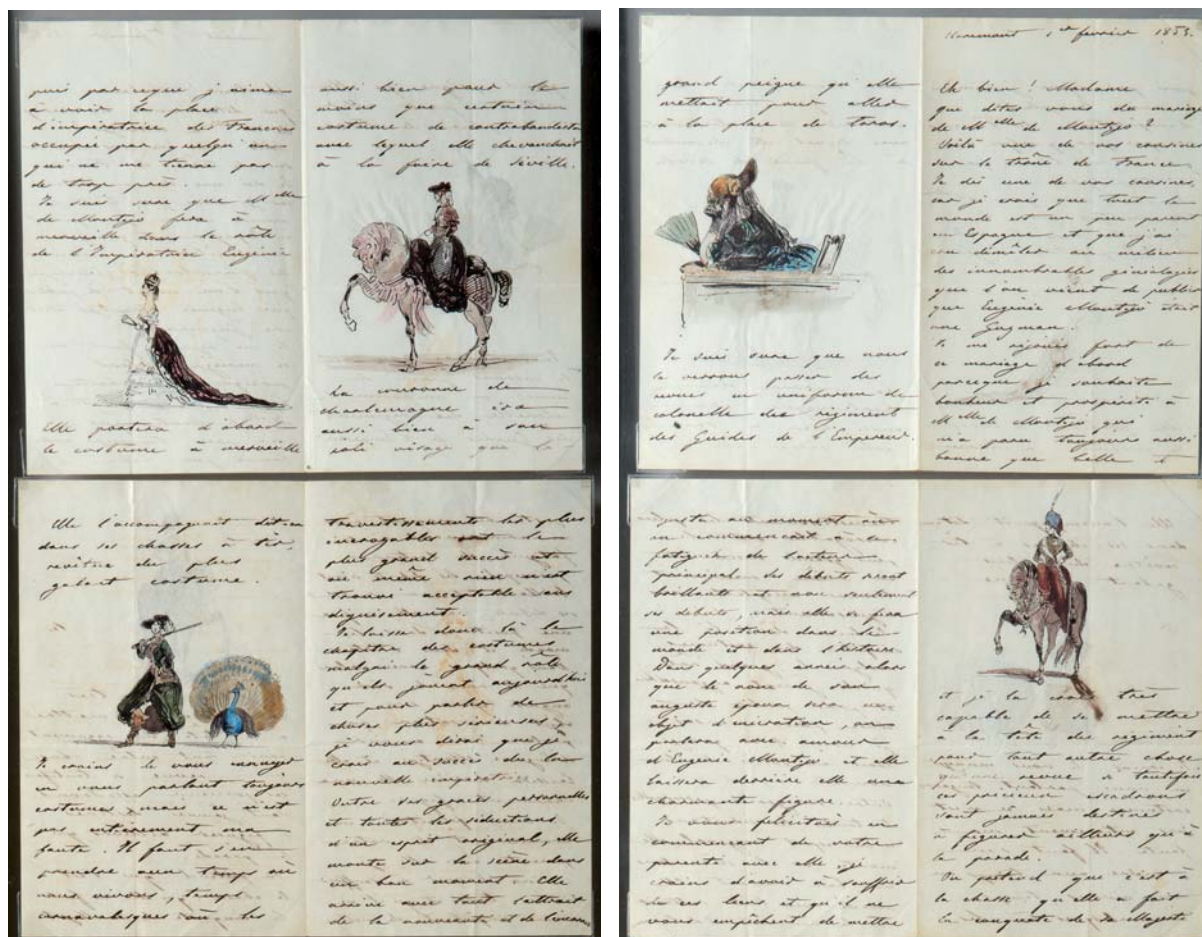 puis parceque j'aime
à voir la place
d'impératrice des Français
occupée par quelqu'un
qui ne me tienne pas
de trop près.
Je suis sure que Mlle
de Montijo fera à
merveille dans le rôle
de l'Impératrice Eugénie
Elle portera d'abord
le costume à merveille
aussi bien pour le
moins que certain
costume de contrabandista
avec lequel elle chevauchait
à la foire de Séville.
La couronne de
charlemagne ira
aussi bien à son
joli visage que le
grand peigne qu'elle
mettait pour aller
à la place de toros.
Je suis sure que nous
la verrons passer des
revues en uniforme de
colonelle des régiment
des Guides de l'Empereur.
1er février 1853.
Eh bien ! Madame
que dites vous du mariage
de Mlle de Montijo ?
Voilà une de vos cousines
sur le trône de France
Je dis une de vos cousines
car je crois que tout le
monde est un peu parent
en Espagne et que j'ai
cru démêler au milieu
des innombrables généalogies
que l'on vient de publier
que Eugénie Montijo était
une Guzman.
Je me réjouis fort de
ce mariage d'abord
parceque je souhaite
bonheur et prospérité à
Mlle de Montijo qui
m'a paru toujours aussi
bonne que belle et
Elle l'accompagnait dit-on
dans ses chasses à tir,
revêtue du plus
galant costume.
Je crains de vous ennuyer
en vous parlant toujours
costumes, mais ce n'est
pas entièrement ma
faute. Il faut s'en
prendre aux temps où
nous vivons, temps
carnavalesques où les
travestissements les plus
incroyables ont le
plus grand succès et
où même rien n'est
trouvé acceptable sans
déguisement.
Je laisse donc là le
chapitre des costumes
malgré le grand rôle
qu'ils jouent aujourd'hui
et pour parler de
choses plus sérieuses
je vous dirai que je
crois au succès de la
nouvelle impératrice
Outre ses graces personnelles
et toutes les séductions
d'un esprit original, elle
monte sur la scène dans
un bon moment. Elle
arrive avec tout l'attrait
de la nouveauté et de l'inconnu
juste au moment où
on commençait à se
fatiguer de l'acteur
principal. Ses débuts seront
brillants et non seulement
ses débuts, mais elle se fera
une position dans le
monde et dans l'histoire.
Dans quelques années alors
que le nom de son
auguste époux sera un
objet d'exécration, on
parlera avec amour
d'Eugénie Montijo et elle
laissera derrière elle une
charmante figure.
Je vous félicitais en
commençant de votre
parenté avec elle, je
crains d'avoir à souffrir
de ces liens et qu'il ne
vous empêchent de mettre
et je la crois très
capable de se mettre
à la tête du régiment
pour tout autre chose
qu'une revue si toutefois
ses précieux escadrons
sont jamais destinés
à figurer ailleurs qu'à
la parade.
On prétend que c'est à
la chasse qu'elle a fait
la conquête de Sa Majesté